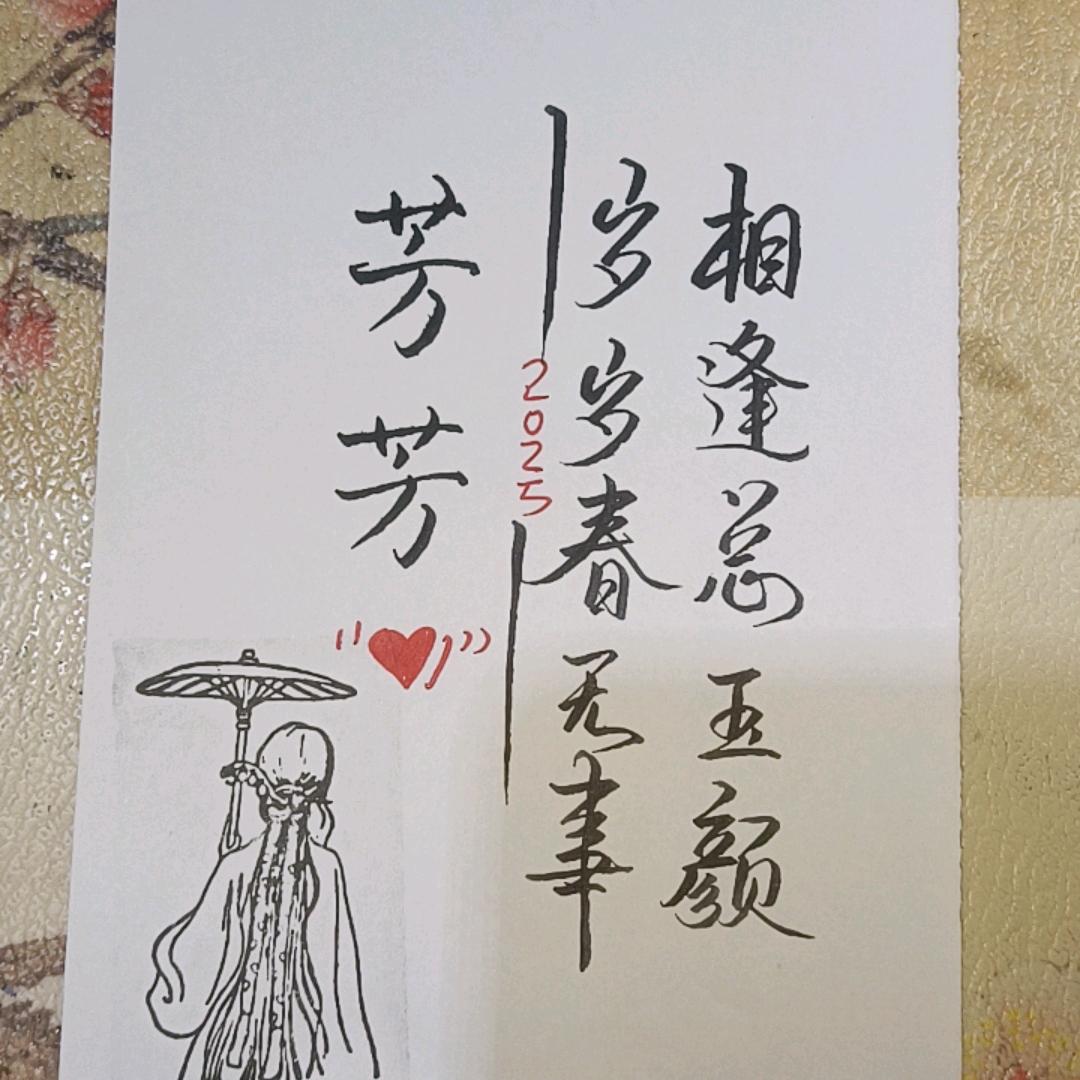 相逢总玉颜
岁岁春无事
2025
芳芳